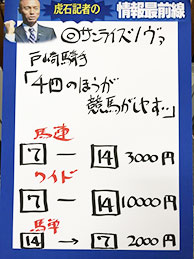 虎石記者の情報最前線
◎サンライズノヴァ
戸崎騎手
「4回のほうが
競馬がしやす‥」
馬連
7 ― 14 3000円
ワイド
7 ― 14 10000円
馬単
14 → 7 2000円